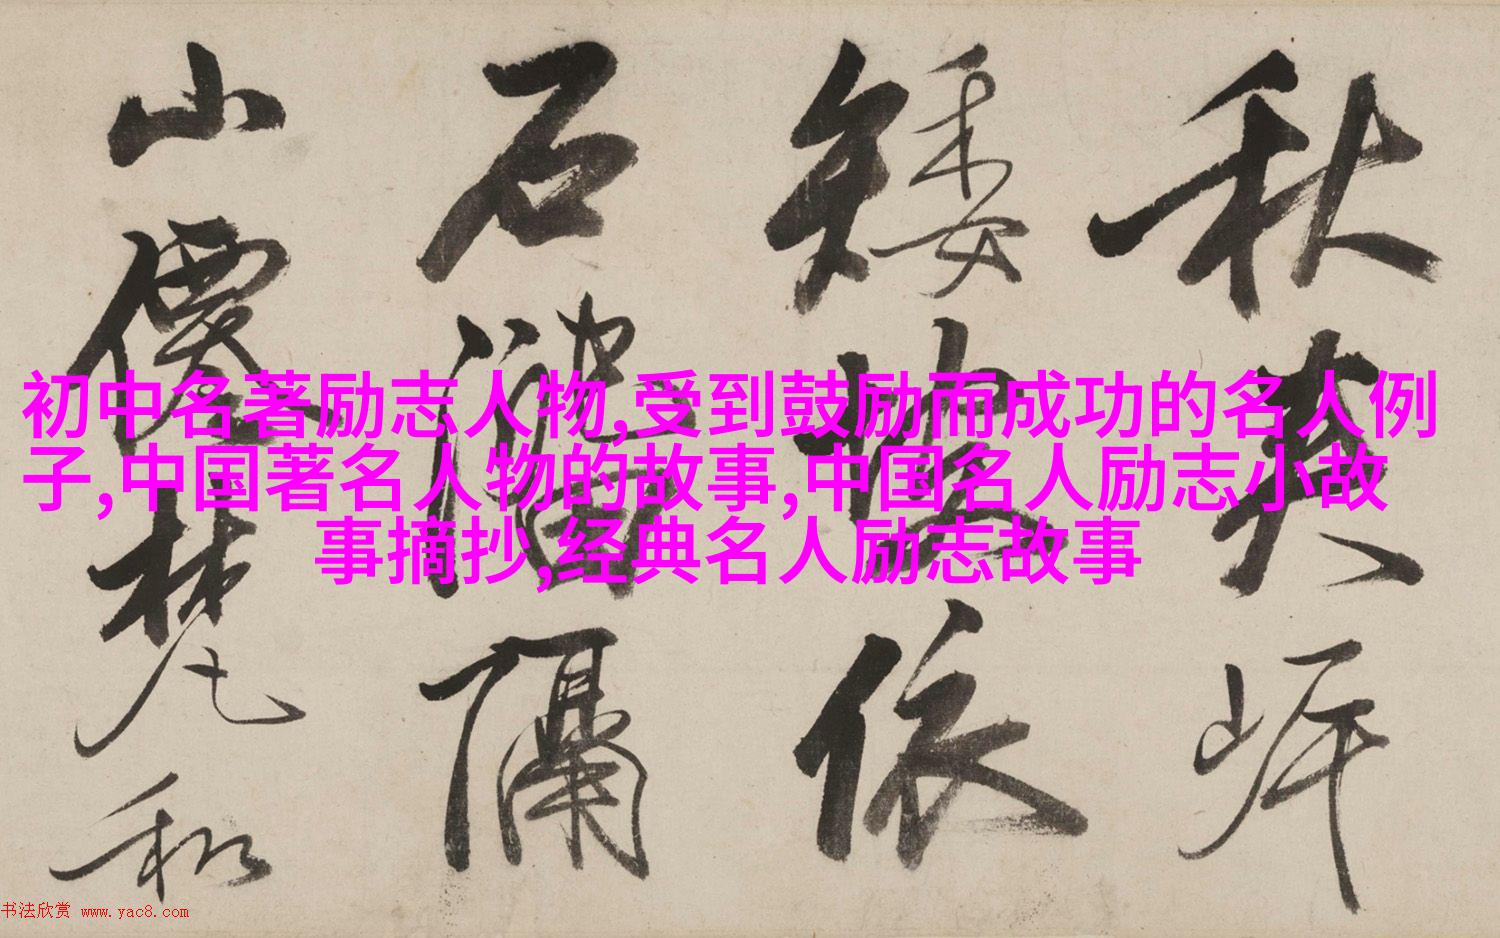 秋英岍
矮堞依
石溜隔
山僊梵和
初中名著励志人物,受到鼓励而成功的名人例
子,中国著名人物的故事,中国名人励志小故
事摘抄,经典名人励志故事
书法欣赏 www.yac8.com